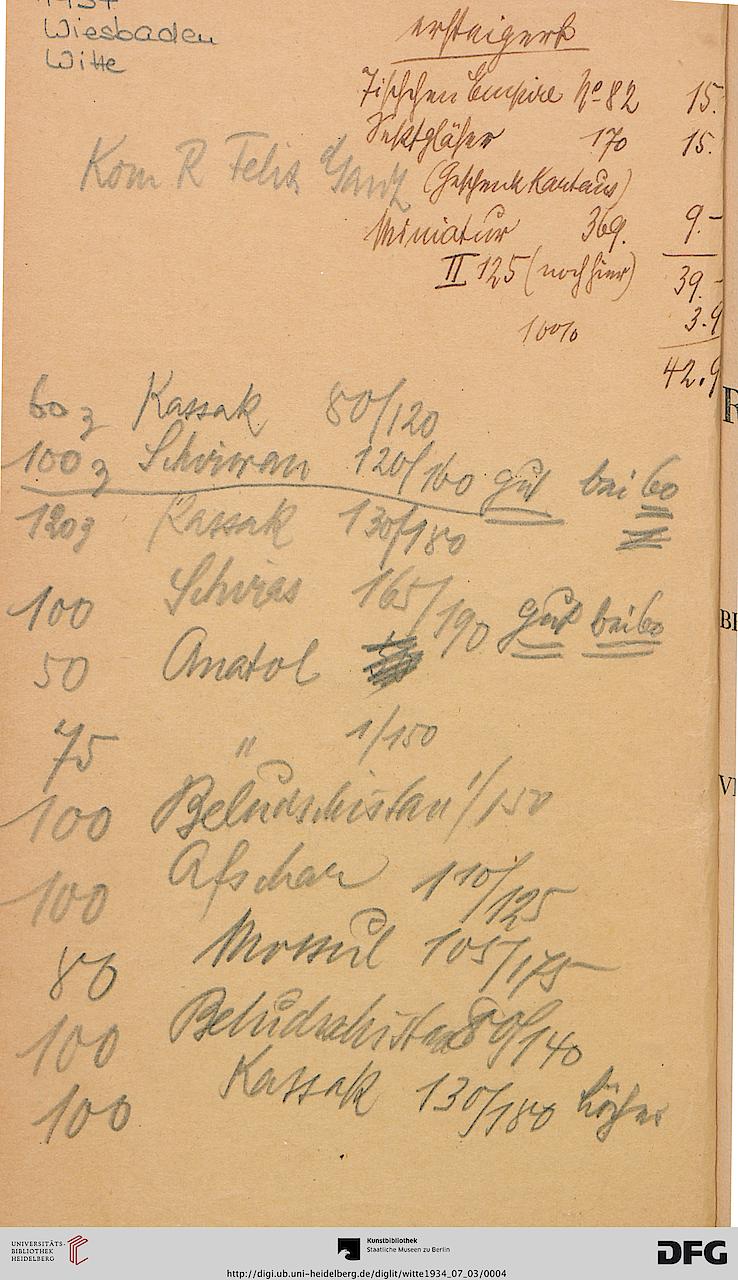 Wiesbaden
Witte
ersteigert
Tischchen Empire No 82 15.
Sektgläser 170 15.
Kom R Felix Ganz
(Geschenk Kautaus)
Miniatur 369. 9.-
II 125 (noch hier) 39.-
10% 3.9
42.9
60 Kassak 80/120
100 Schirwan 120/160 gut bei 60
120 Kassak 130/180
100 Schiras 165/190 gut bei 60
50 Anatol
75 " 1/150
100 Beludschistan 1/150
100 Afschar 110/125
80 Mossul 105/175
100 Beludschistan 80/140
100 Kassak 130/180 höher
R
BE
VI
UNIVERSITÄTS-
BIBLIOTHEK
HEIDELBERG
Kunstbibliothek
Staatliche Museen zu Berlin
DFG
http://digi.ub.uni-heidelberg.de/diglit/witte1934_07_03/0004